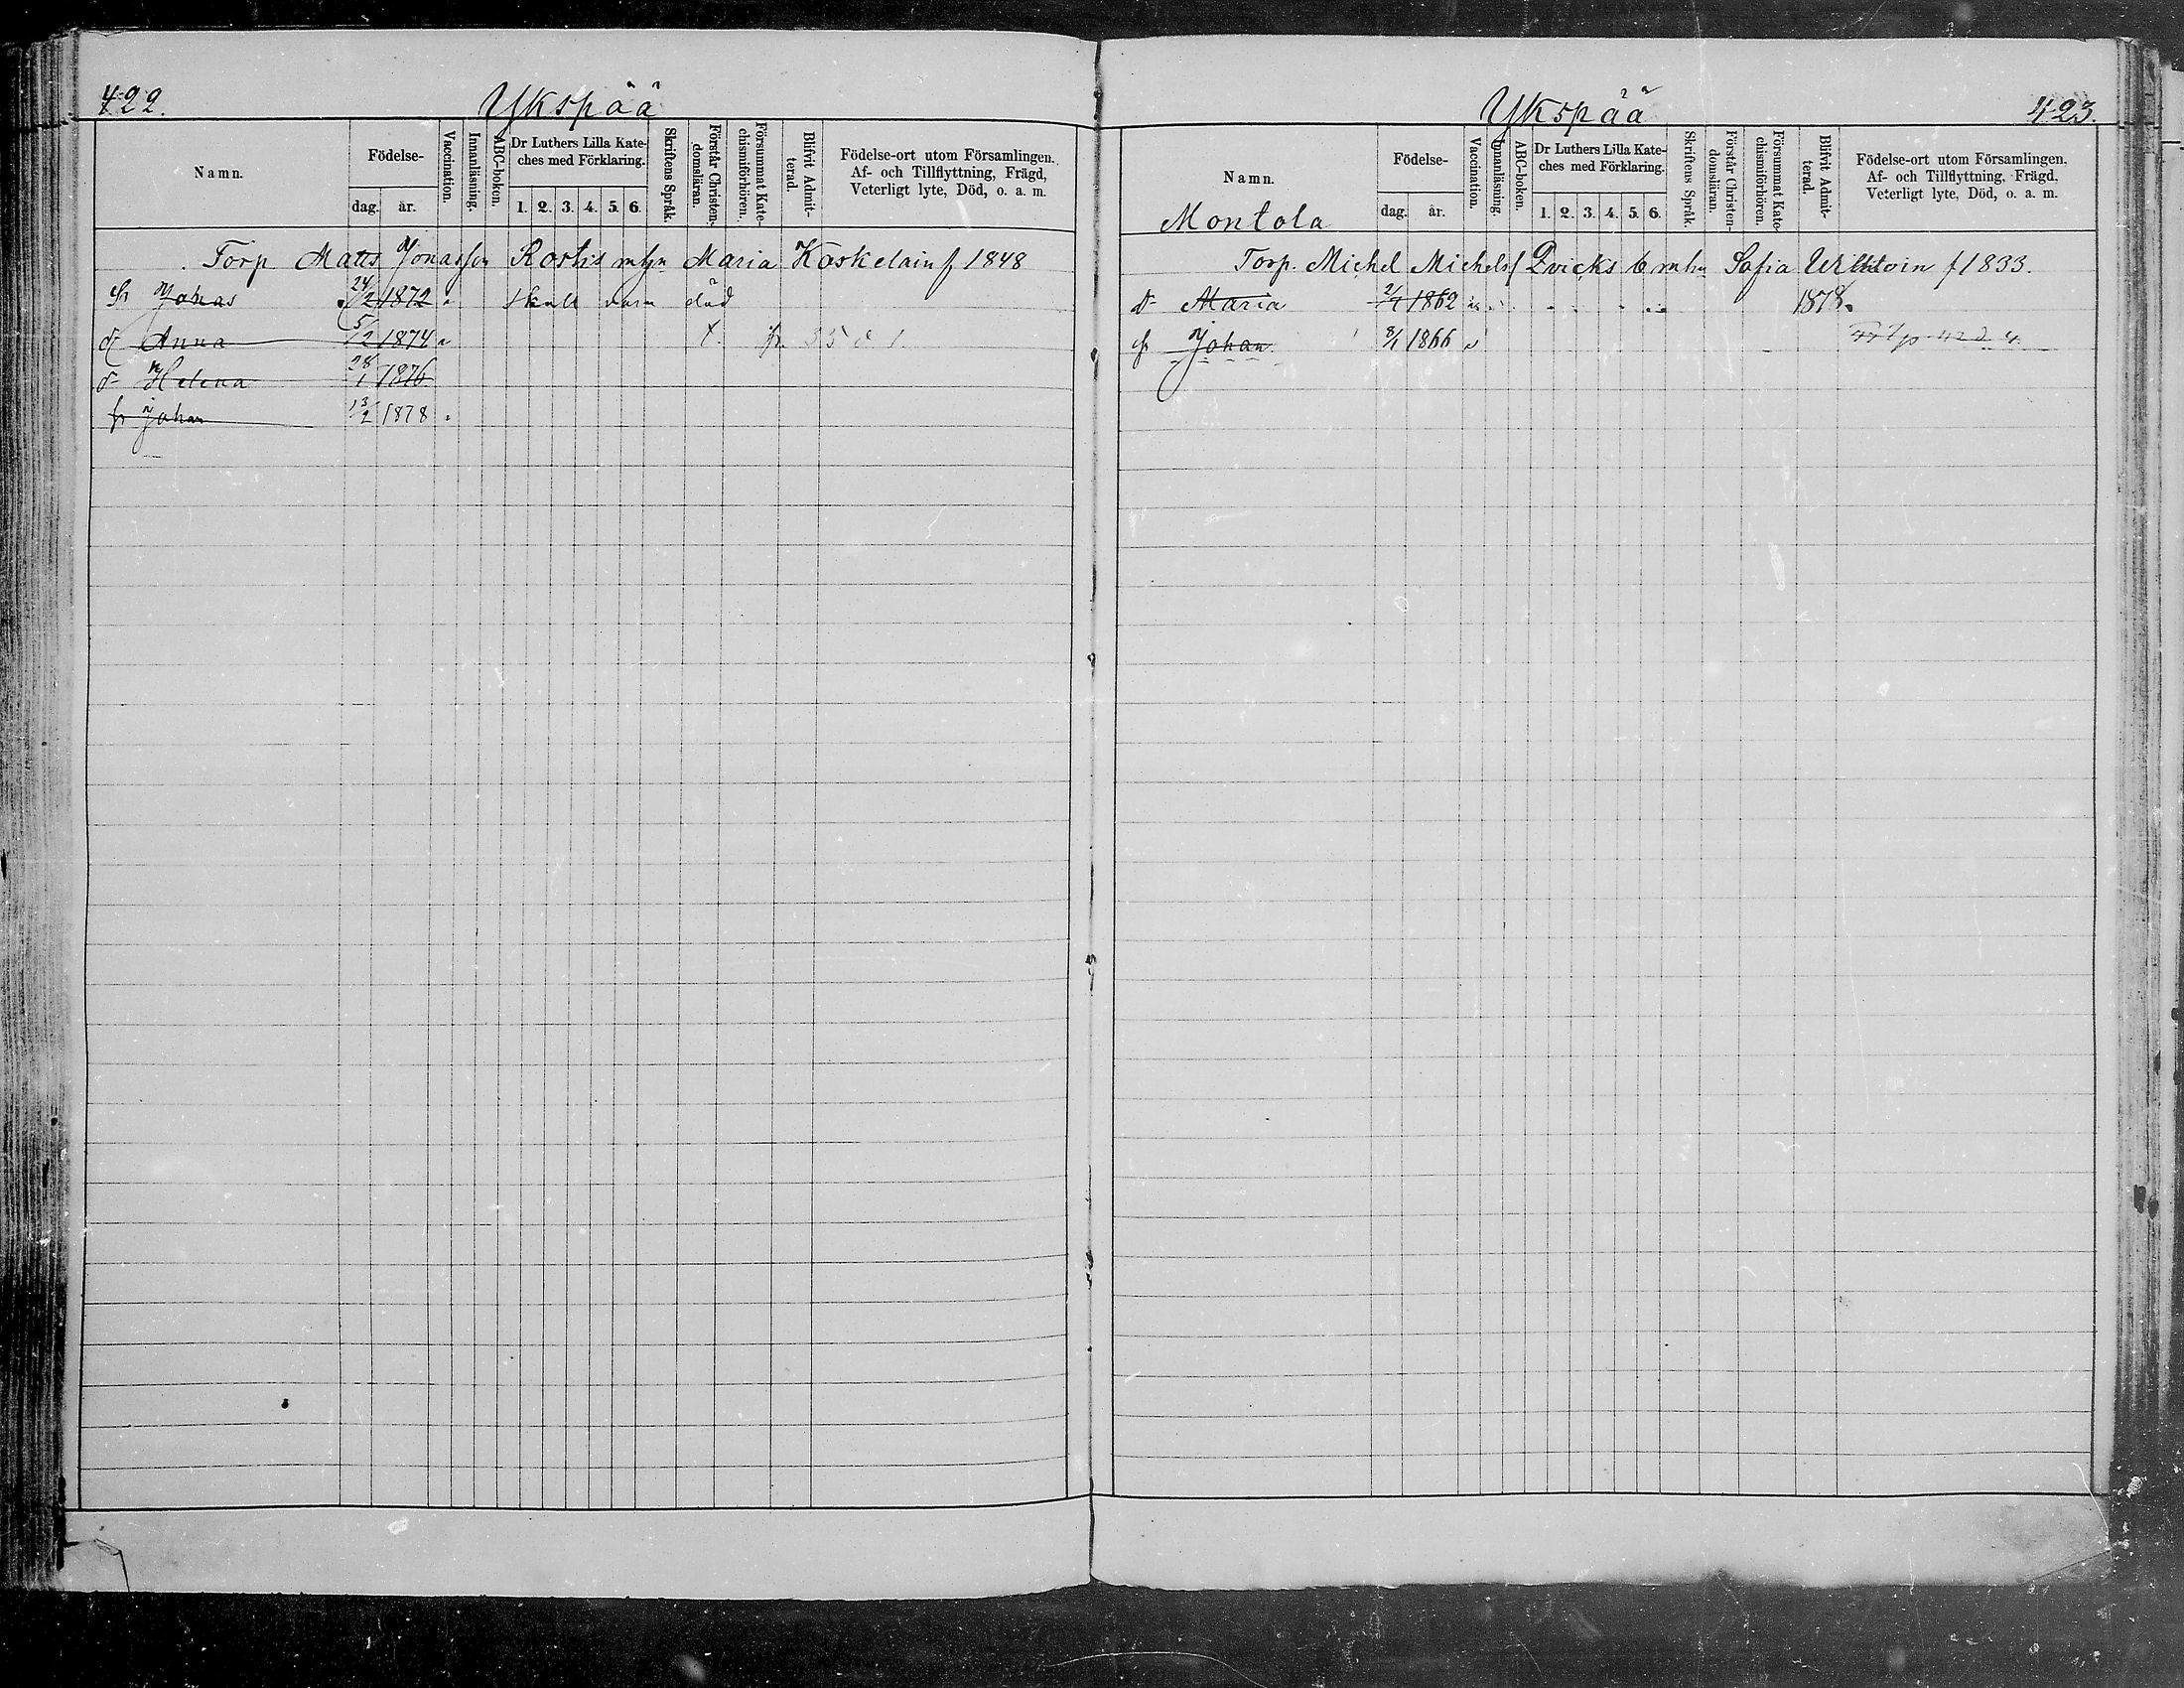 422.
Ykspää
Namn.
Födelse-
dag. år.
Vaccination.
Innanläsning.
ABC-boken.
Dr Luthers Lilla Kate-
ches med Förklaring.
1. 2. 3. 4. 5. 6.
Skriftens Språk.
Förstår Christen-
domsläran.
Försummat Kate-
chismiförhören.
Blifvit Admit-
terad.
Födelse-ort utom Församlingen.
Af- och Tillflyttning, Frägd,
Veterligt lyte, Död, o. a. m.
Torp. Matts Jonasson Rostis Maria Koskelain f 1848
Jonas 24/2 1872 skall vara död
d Anna 5/2 1874
d Helena 28/1 1876
Johan 13/2 1878
Ykspää
423.
Namn.
Montola
Födelse-
dag. år.
Vaccination.
Innanläsning.
ABC-boken.
Dr Luthers Lilla Kate-
ches med Förklaring.
1. 2. 3. 4. 5. 6.
Skriftens Språk.
Förstår Christen-
domsläran.
Försummat Kate-
chismiförhören.
Blifvit Admit-
terad.
Födelse-ort utom Församlingen.
Af- och Tillflyttning, Frägd,
Veterligt lyte, Död, o. a. m.
Torp. Michel Michelsf Qvicks Sofia f 1833.
d Maria 2/7 1862 1878.
Johan 8/1 1866